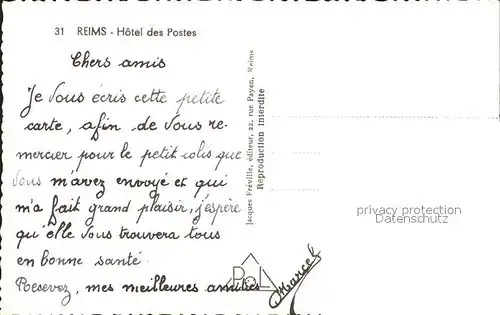 31 REIMS - Hôtel des Postes
Chers amis
Je vous écris cette petite
carte, afin de vous re-
mercier pour le petit colis que
vous m'avez envoyé et qui
m'a fait grand plaisir, j'espère
qu'elle vous trouvera tous
en bonne santé
Recevez, mes meilleures amitiés
Marcel
Jacques Fréville, éditeur, 22, rue Payen, Reims
Reproduction interdite
POL
privacy protection
Datenschutz